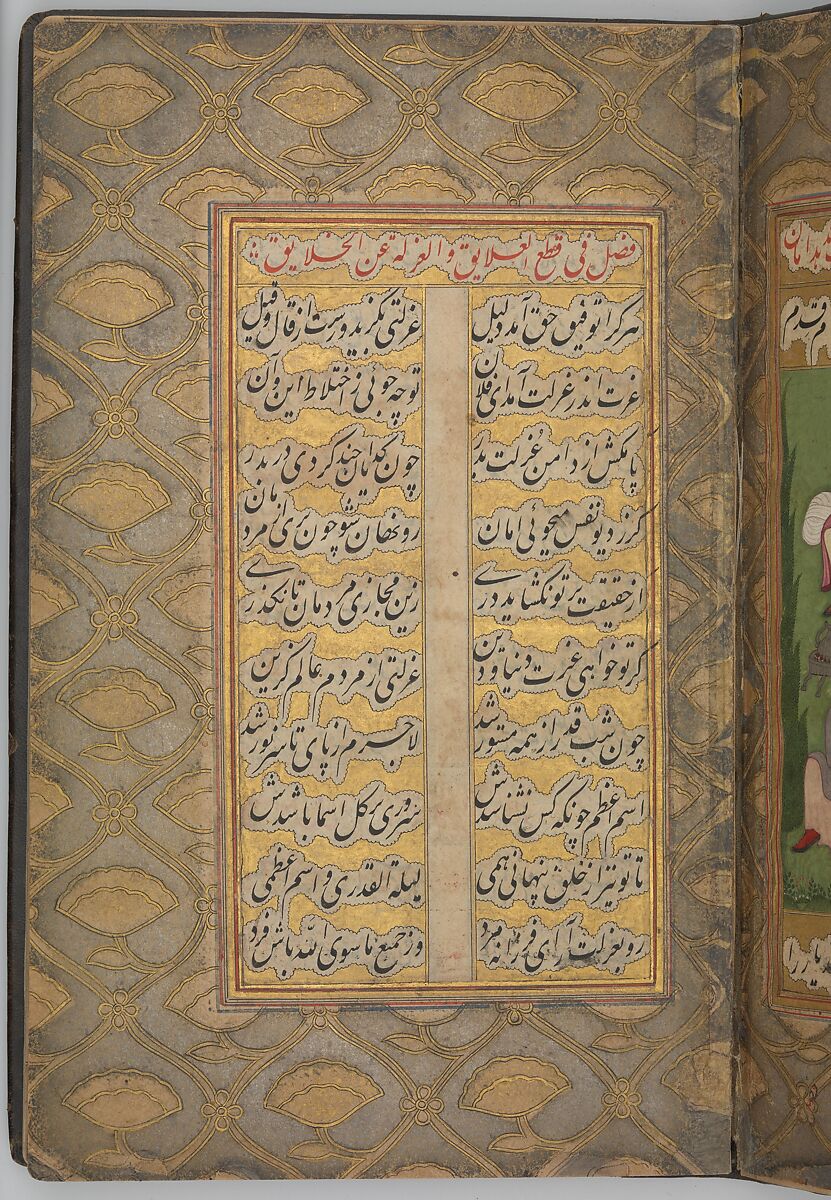 فصل فی قطع العلایق والعزلة عن الخلایق
هر کرا توفیق حق آمد دلیل
عزلتی بگزید و رست از قال و قیل
عزت اندر عزلت آمد ای فلان
تو چه جوئی ز اختلاط این و آن
پا مکش از دامن عُزلت بدر
چون کدایان چند کردی در بدر
کر ز دیو نفس میجوئی امان
رو نهان شو چون پری از مردمان
از حقیقت بر تو نکشاید دری
زین مجازی مردمان تا نکذری
کر تو خواهی عزت دنیا و دین
عزلتی از مردم عالم کزین
چون شب قدر از همه مستور شد
لاجرم از پای تا سر نور شد
اسم اعظم چونکه کس نشناسدش
سروری بر کل اسما باشدش
تا تو نیز از خلق پنهانی همی
لیلة القدری و اسم اعظمی
رو بعزلت آر ای فرزانه مرد
وز جمیع ماسوی الله باش فرد